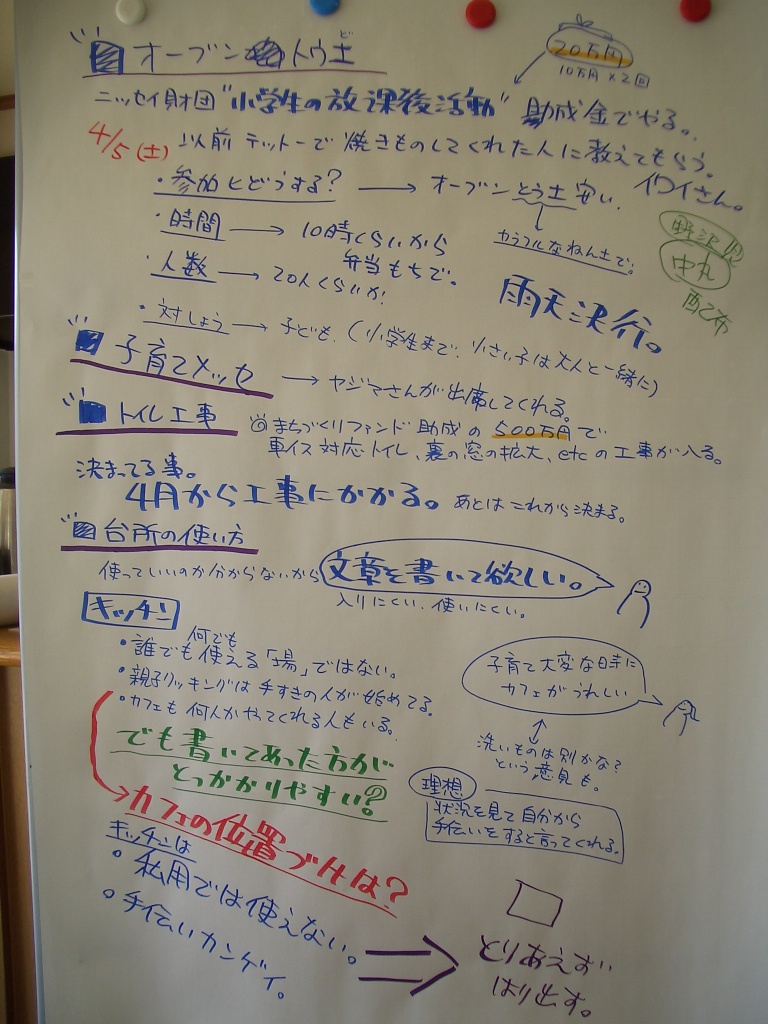 オーブントウ土
ド
20万円
10万円×2回
ニッセイ財団"小学生の放課後活動"助成金でやる。
4/5(土) 以前テットーで焼きものしてくれた人に教えてもらう。
イワイさん。
・参加ヒどうする? → オーブンとう土安い。
カラフルなねん土で。
・時間 → 10時くらいから
弁当もちで。
・人数 → 20人くらいか!
野沢
中丸
配布
雨天決行。
・対しょう → 子ども。(小学生まで。小さい子は大人と一緒に)
子育てメッセ → ヤジマさんが出席してくれる。
トイレ工事 ◎まちづくりファンド助成の500万円で
車イス対応トイレ、裏の窓の拡大、etcの工事が入る。
決まってる事。
4月から工事にかかる。あとはこれから決まる。
台所の使い方
使っていいのか分からないから 文章を書いて欲しい。
入りにくい、使いにくい。
キッチン
何でも
・誰でも使える「場」ではない。
・親子クッキングは手すきの人が始めてる。
・カフェも何人かやってくれる人もいる。
子育て大変な時に
カフェがうれしい
洗いものは別かな?
という意見も。
でも書いてあった方が
とっかかりやすい?
理想
状況を見て自分から
手伝いをすると言ってくれる。
→カフェの位置づけは?
キッチンは
・私用では使えない。
・手伝いカンゲイ。
⇒ とりあえず
はり出す。